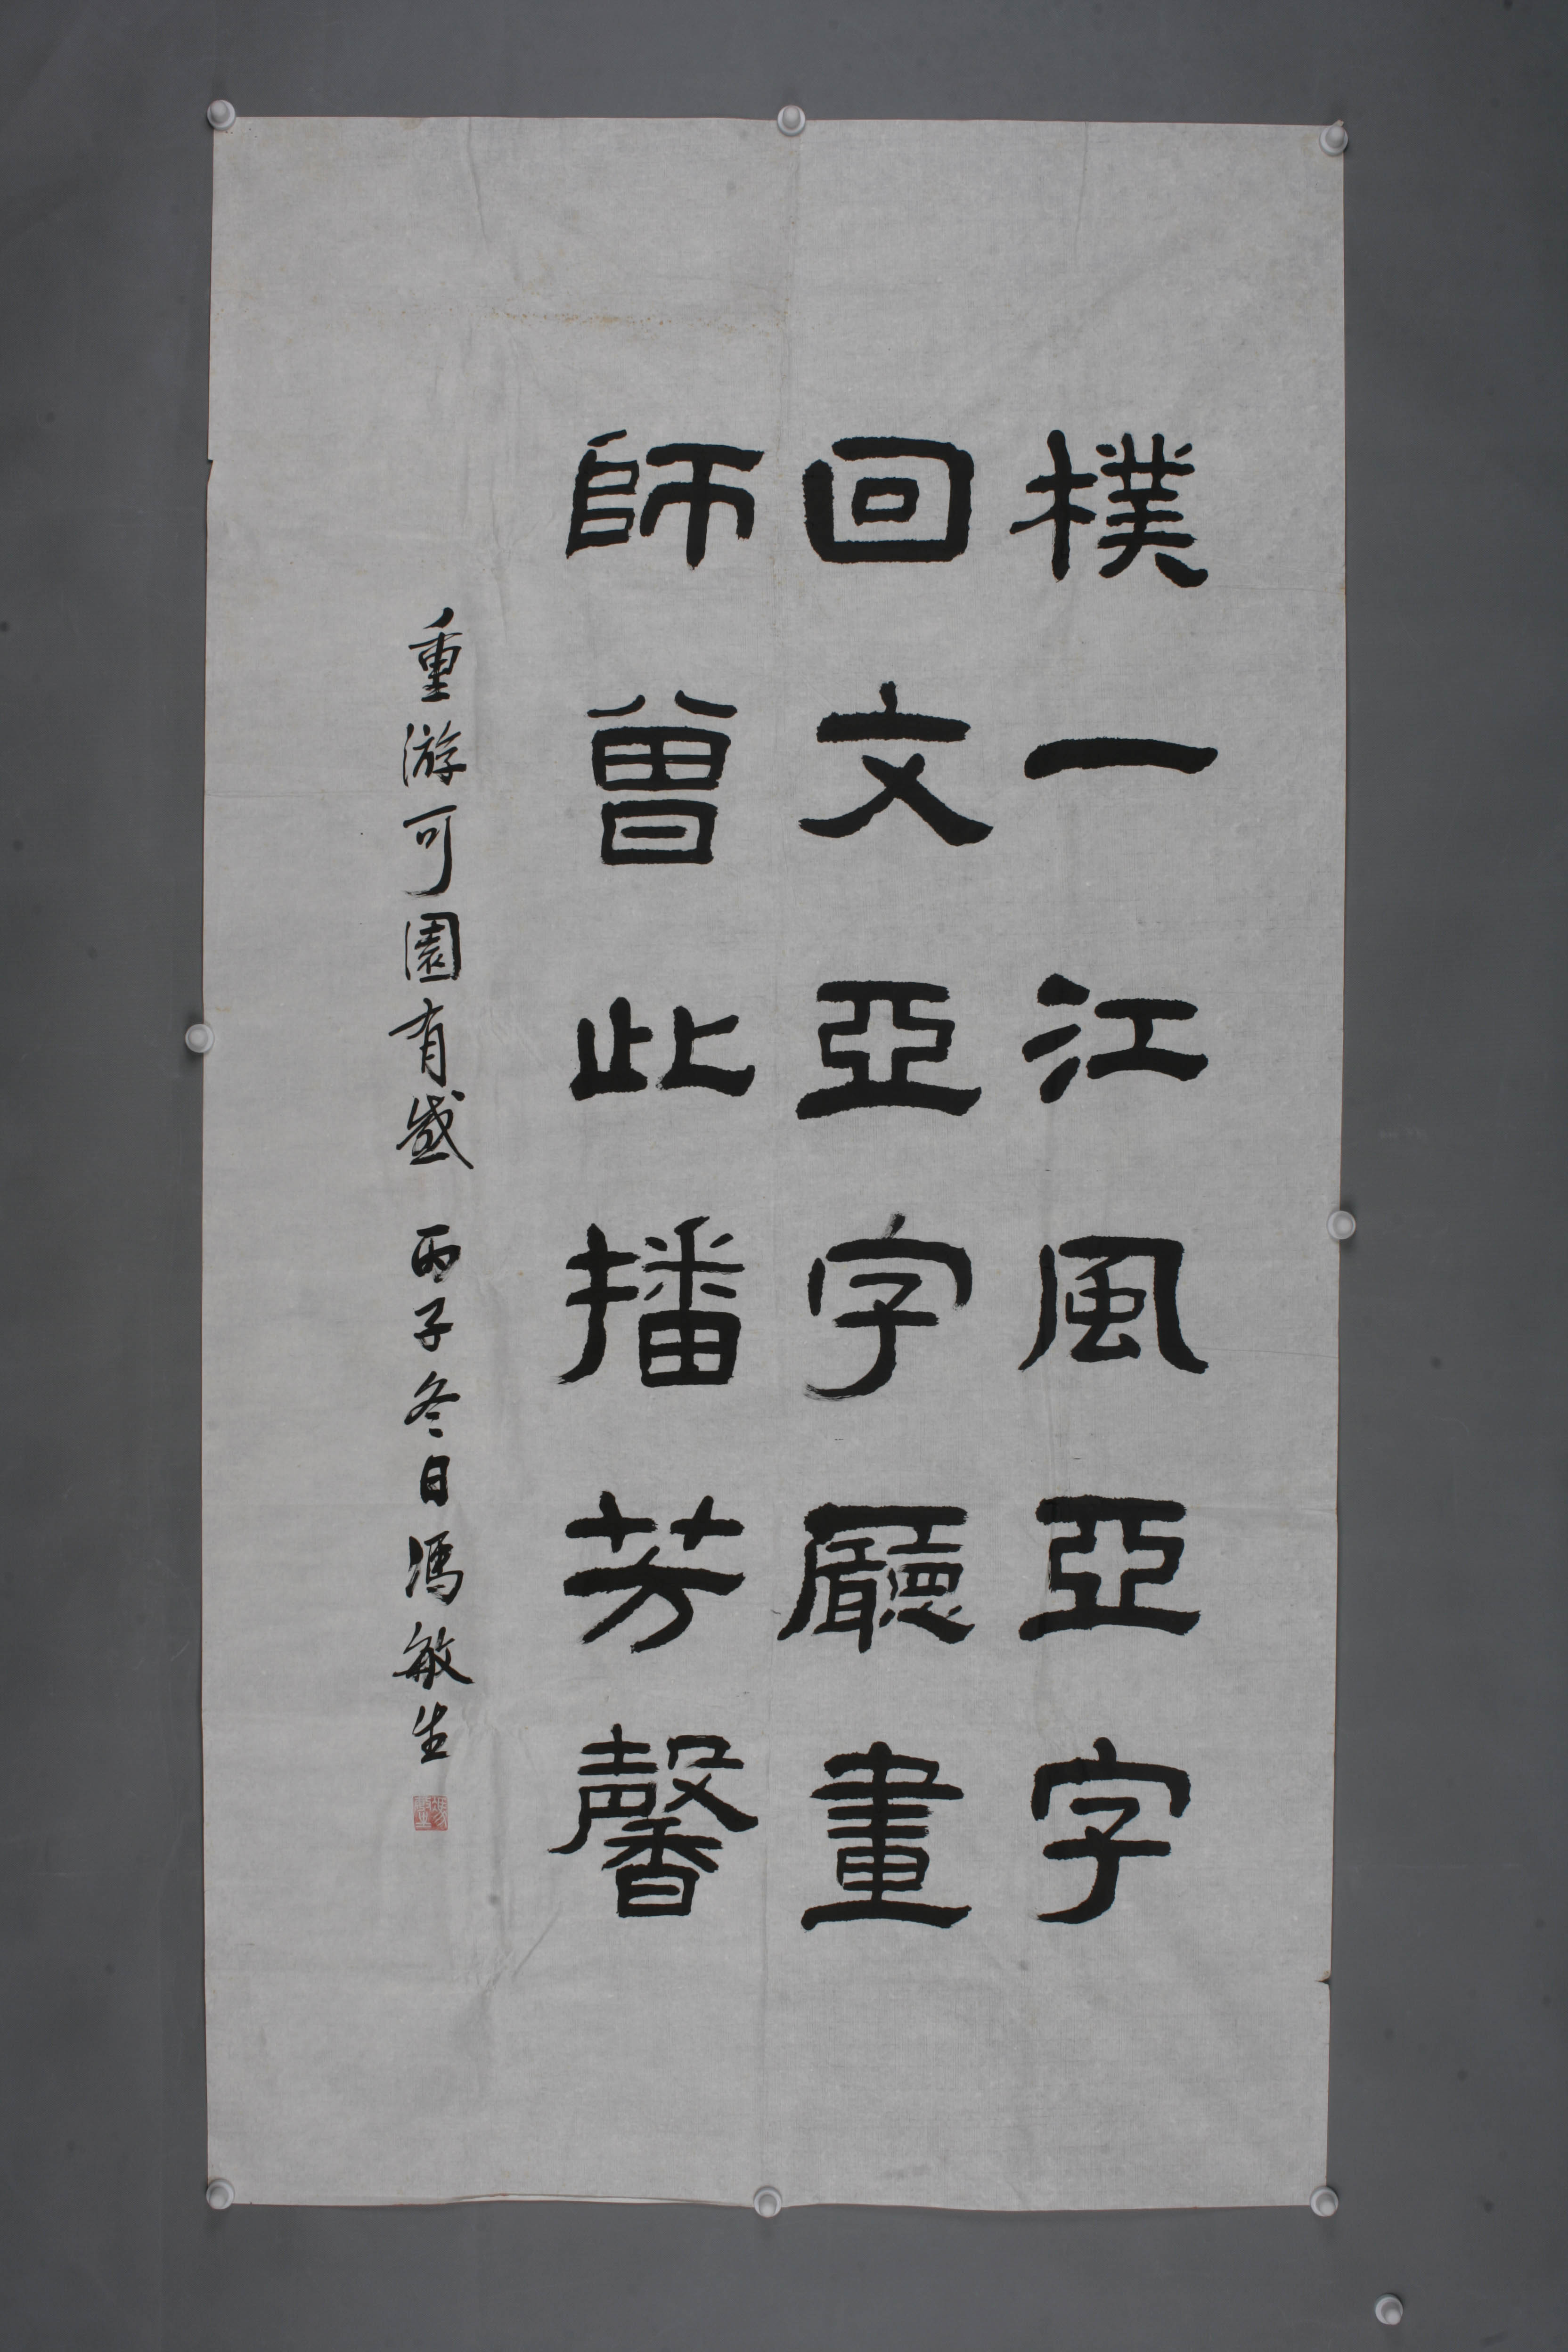 樸一江風亞字
回文亞字廳畫
師曾此播芳馨
重游可園有感 丙子冬日馮敏生